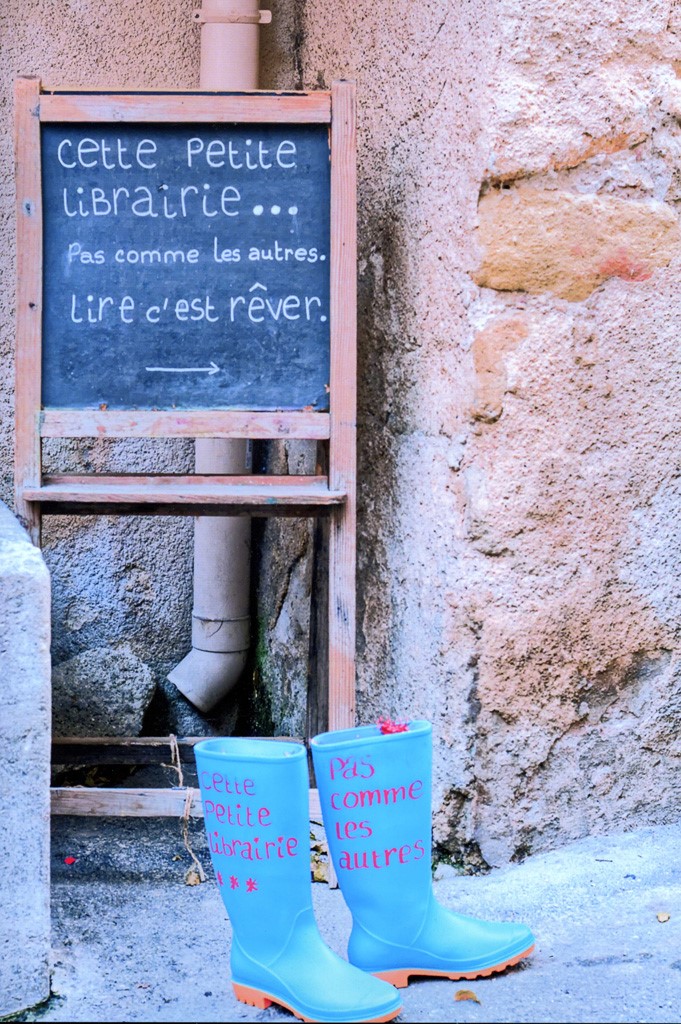 cette petite
librairie...
Pas comme les autres.
lire c'est rêver.
cette
petite
librairie
***
Pas
comme
les
autres